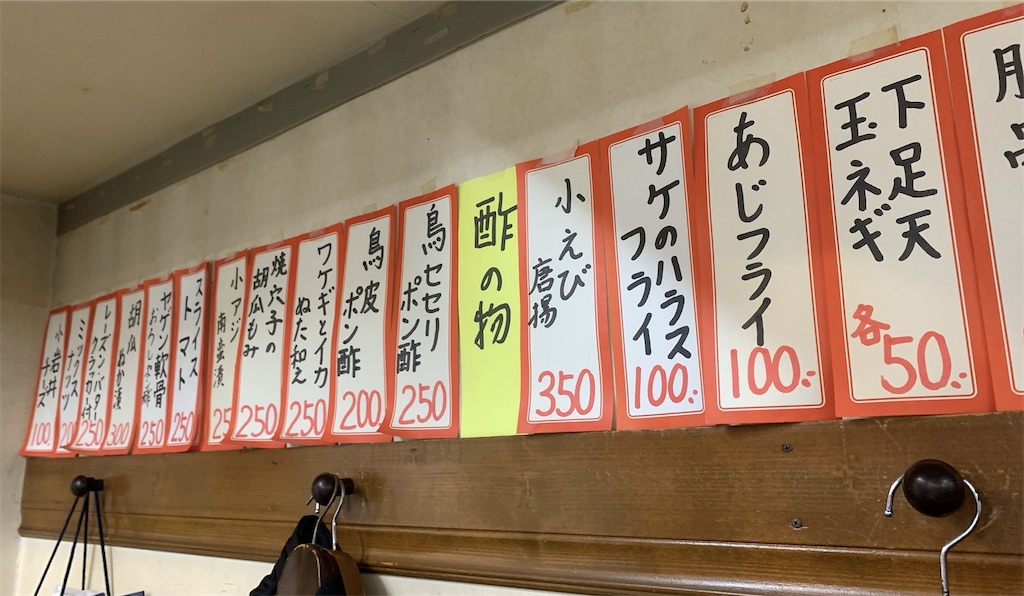 下足天
玉ネギ
各50.-
あじフライ
100.-
サケのハラス
フライ
100.-
小えび
唐揚
350
酢の物
鳥セセリ
ポン酢
250
鳥皮
ポン酢
200
ワケギとイカ
ぬた和え
250
焼穴子の
胡瓜もみ
250
小アジ
南蛮漬
25
スライス
トマト
250
ヤゲン軟骨
おろしポン酢
250
胡瓜
ぬか漬
300
レーズンバター
クラッカー付
250
ミックス
ナッツ
20
小岩井
チーズ
100